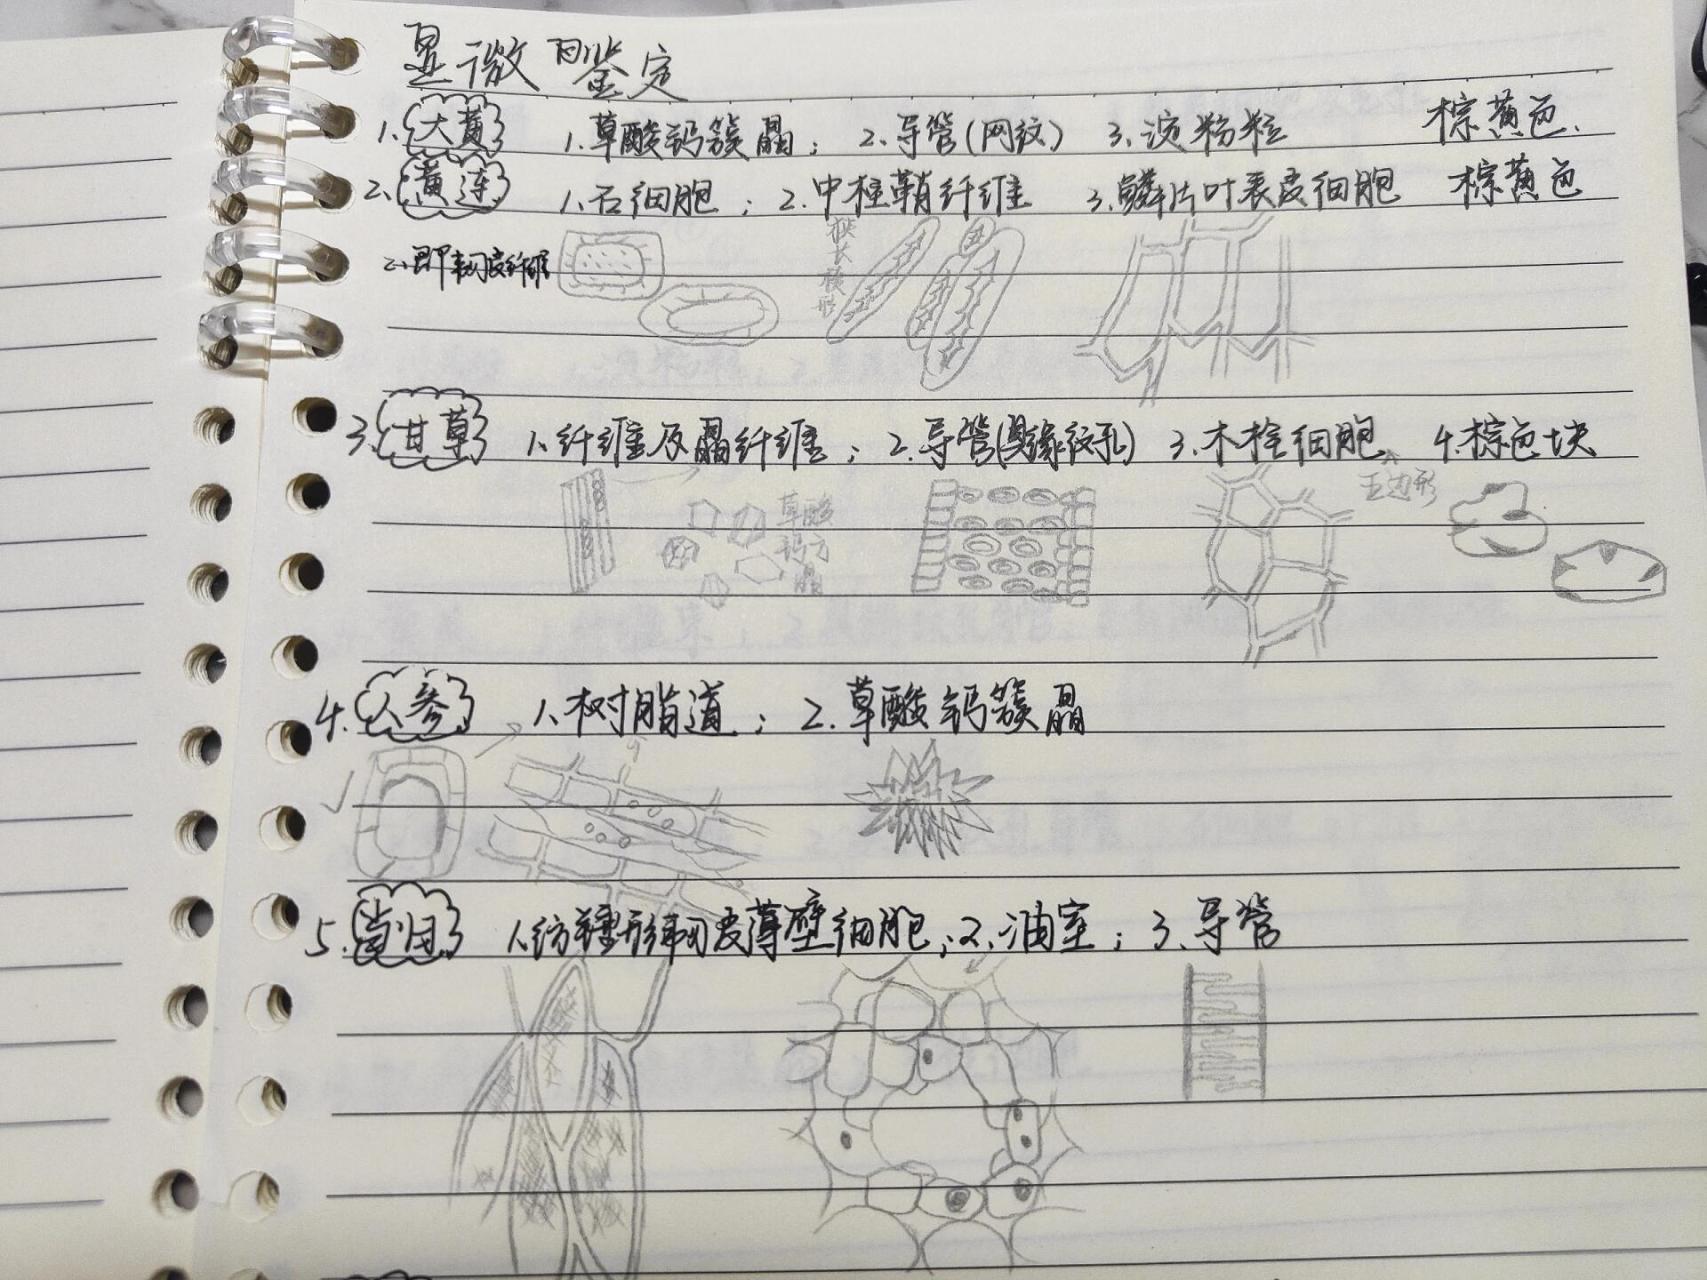 显微鉴定
1. 大黄 1.草酸钙簇晶； 2.导管(网纹) 3.淀粉粒 棕黄色.
2. 黄连 1.石细胞； 2.中柱鞘纤维 3.鳞片叶表皮细胞 棕黄色
2.即韧皮纤维
3. 甘草 1.纤维及晶纤维； 2.导管(具缘纹孔) 3.木栓细胞 4.棕色块
五边形
草酸
钙方
晶
4. 人参 1.树脂道； 2.草酸钙簇晶
5. 当归 1.纺锤形韧皮薄壁细胞；2.油室；3.导管